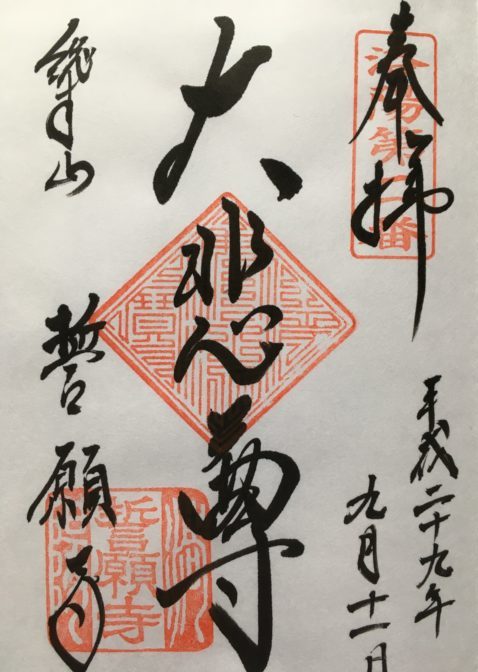 奉拝
洛陽第二番
平成二十九年
九月十一日
大悲尊
総本山
誓願寺
誓願寺